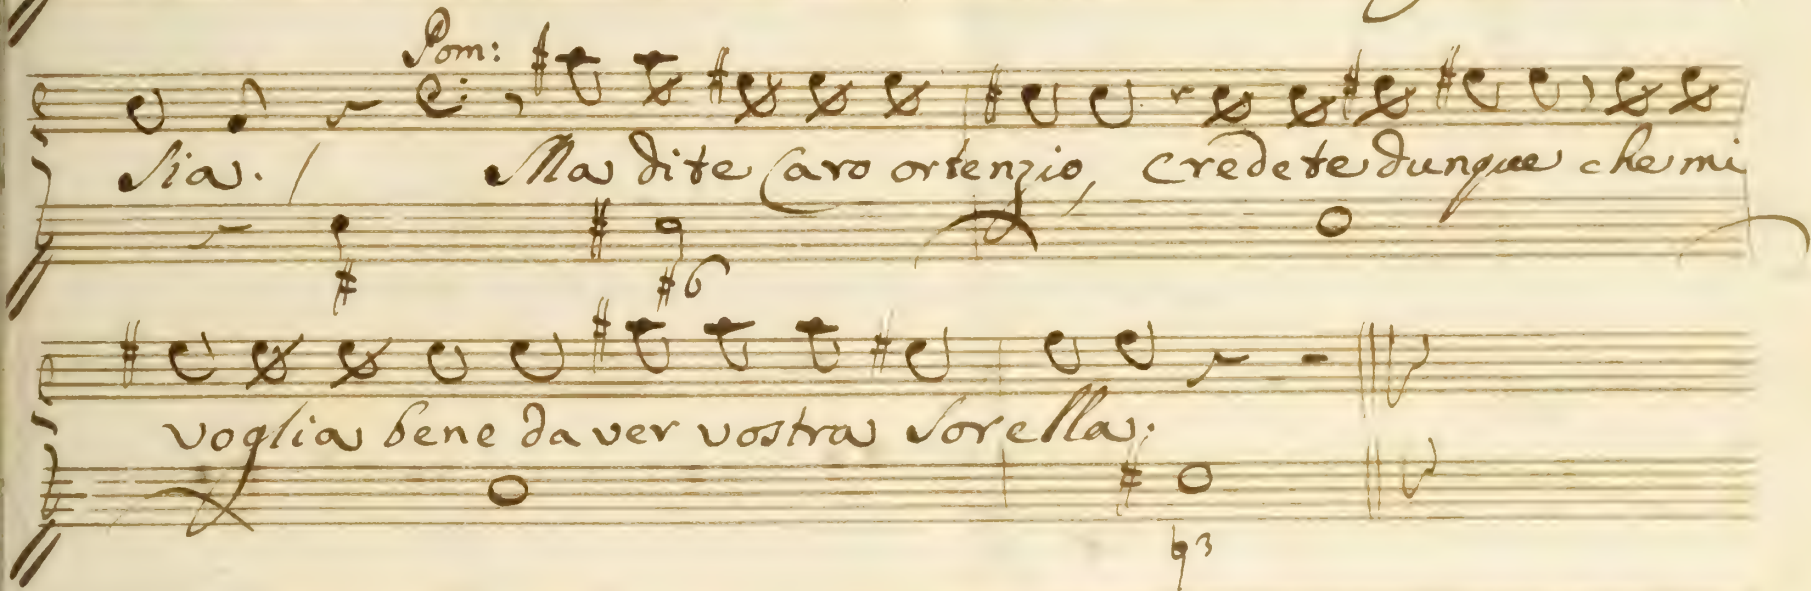 Pom:
sia. / Ma dite Caro ortenzio, credete dunque che mi
#
#6
voglia bene da ver vostra sorella.
♮3